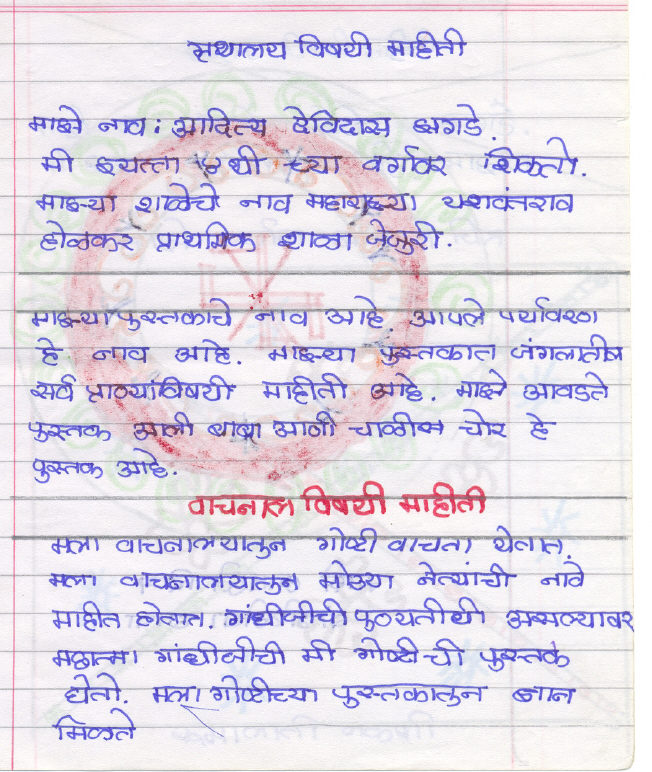 ग्रथालय विषयी माहीती
माझे नाव : आदित्य देविदास झगडे.
मी इयत्ता ४थी च्या वर्गावर शिकतो.
माझ्या शाळेचे नाव महाराज्या यशवंतराव
होळकर प्राथमिक शाळा जेजुरी.
माझ्या पुस्तकाचे नाव आहे. आपले पर्यावरण
हे नाव आहे. माझ्या पुस्तकात जंगलातील
सर्व प्राण्यांविषयी माहीती आहे. माझे आवडते
पुस्तक आली बाबा आणी चाळीस चोर हे
पुस्तक आहे.
वाचनाल विषयी माहीती
मला वाचनालयातुन गोष्टी वाचता येतात.
मला वाचनालयातुन मोठ्या नेत्यांची नावे
माहीत होतात. गांधीजीची पुण्यतीथी असल्यावर
महात्मा गांधीजीची मी गोष्टीची पुस्तके
घेतो. मला गोष्टीच्या पुस्तकातुन ज्ञान
मिळते